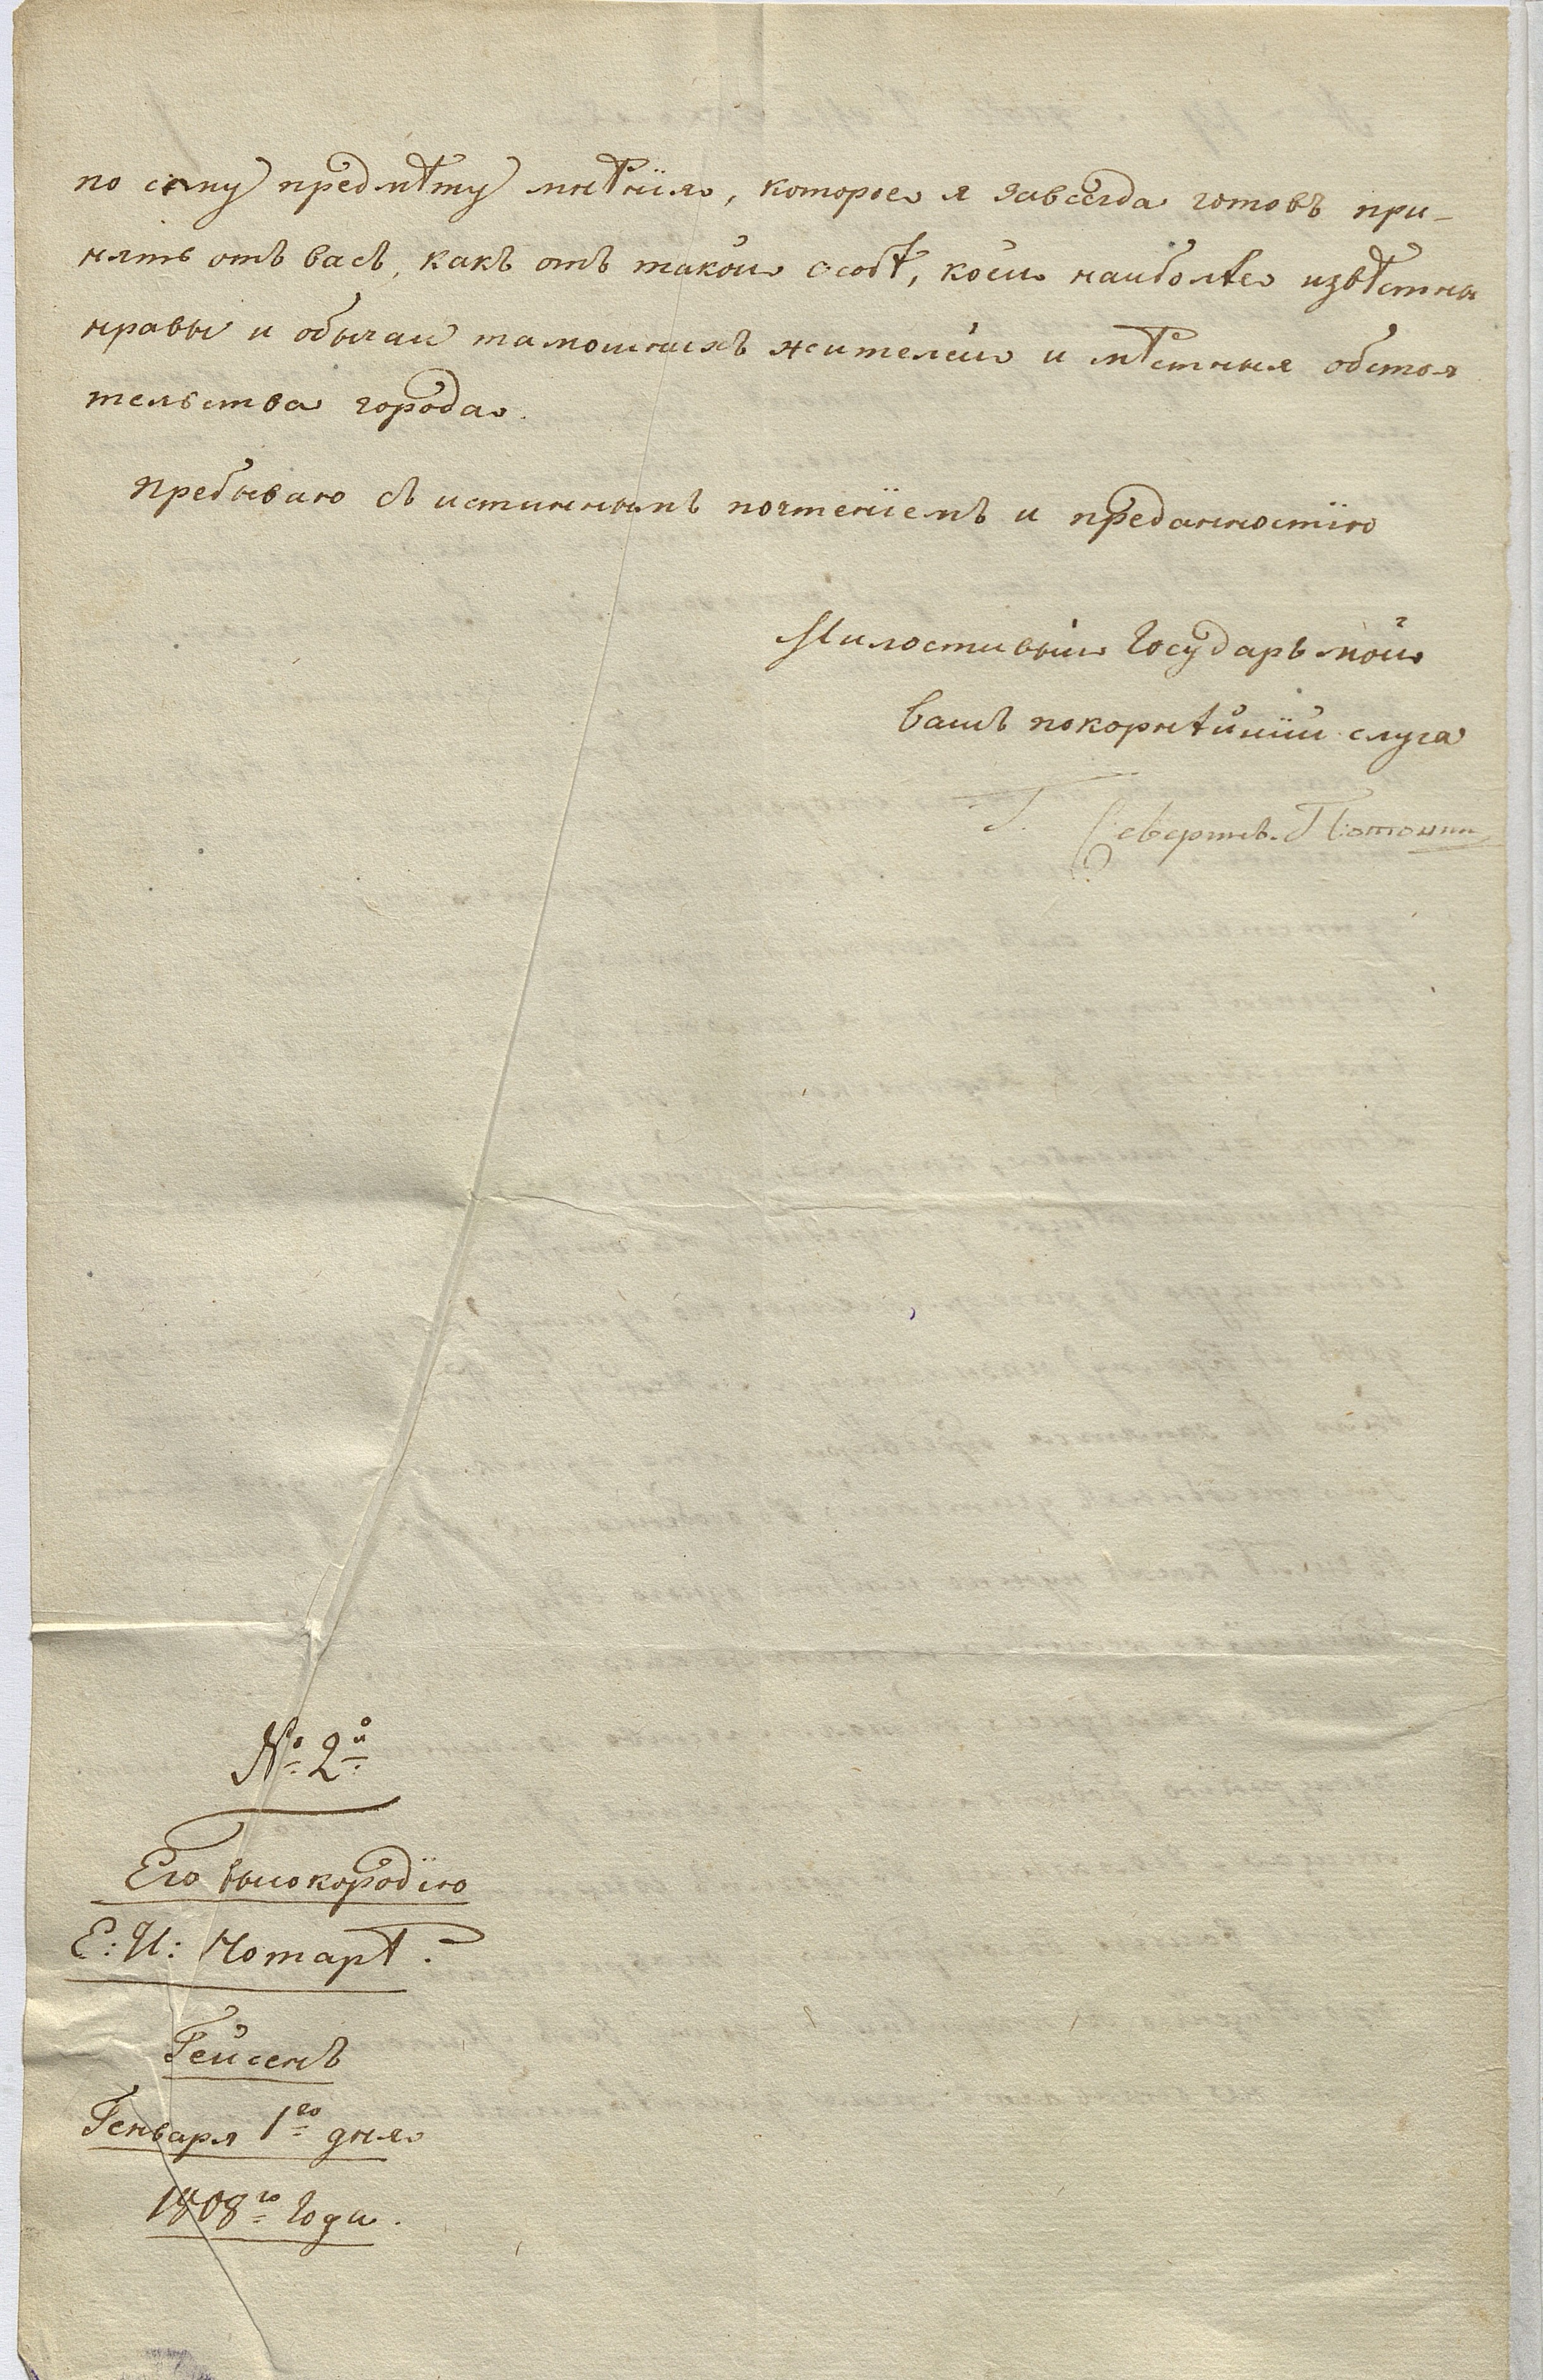 по сему предмѣту мнѣнiя, которое я завсегда готовъ при-
нять отъ васъ, какъ отъ такой особѣ, коей наиболѣе извѣстны
нравы и обычаи тамошнихъ жителей и мѣстныя обстоя
тельства города.
Пребываю съ истиннымъ почтенiемъ и преданностiю
Милостивый Государь мой
вашъ покорнѣйшiй слуга
Г. Северинъ Потоцкий
№ 2й
Его высокородiю
Е: И: Нотарѣ.
Гейсенъ
Генваря 1го дня
1808го Года.